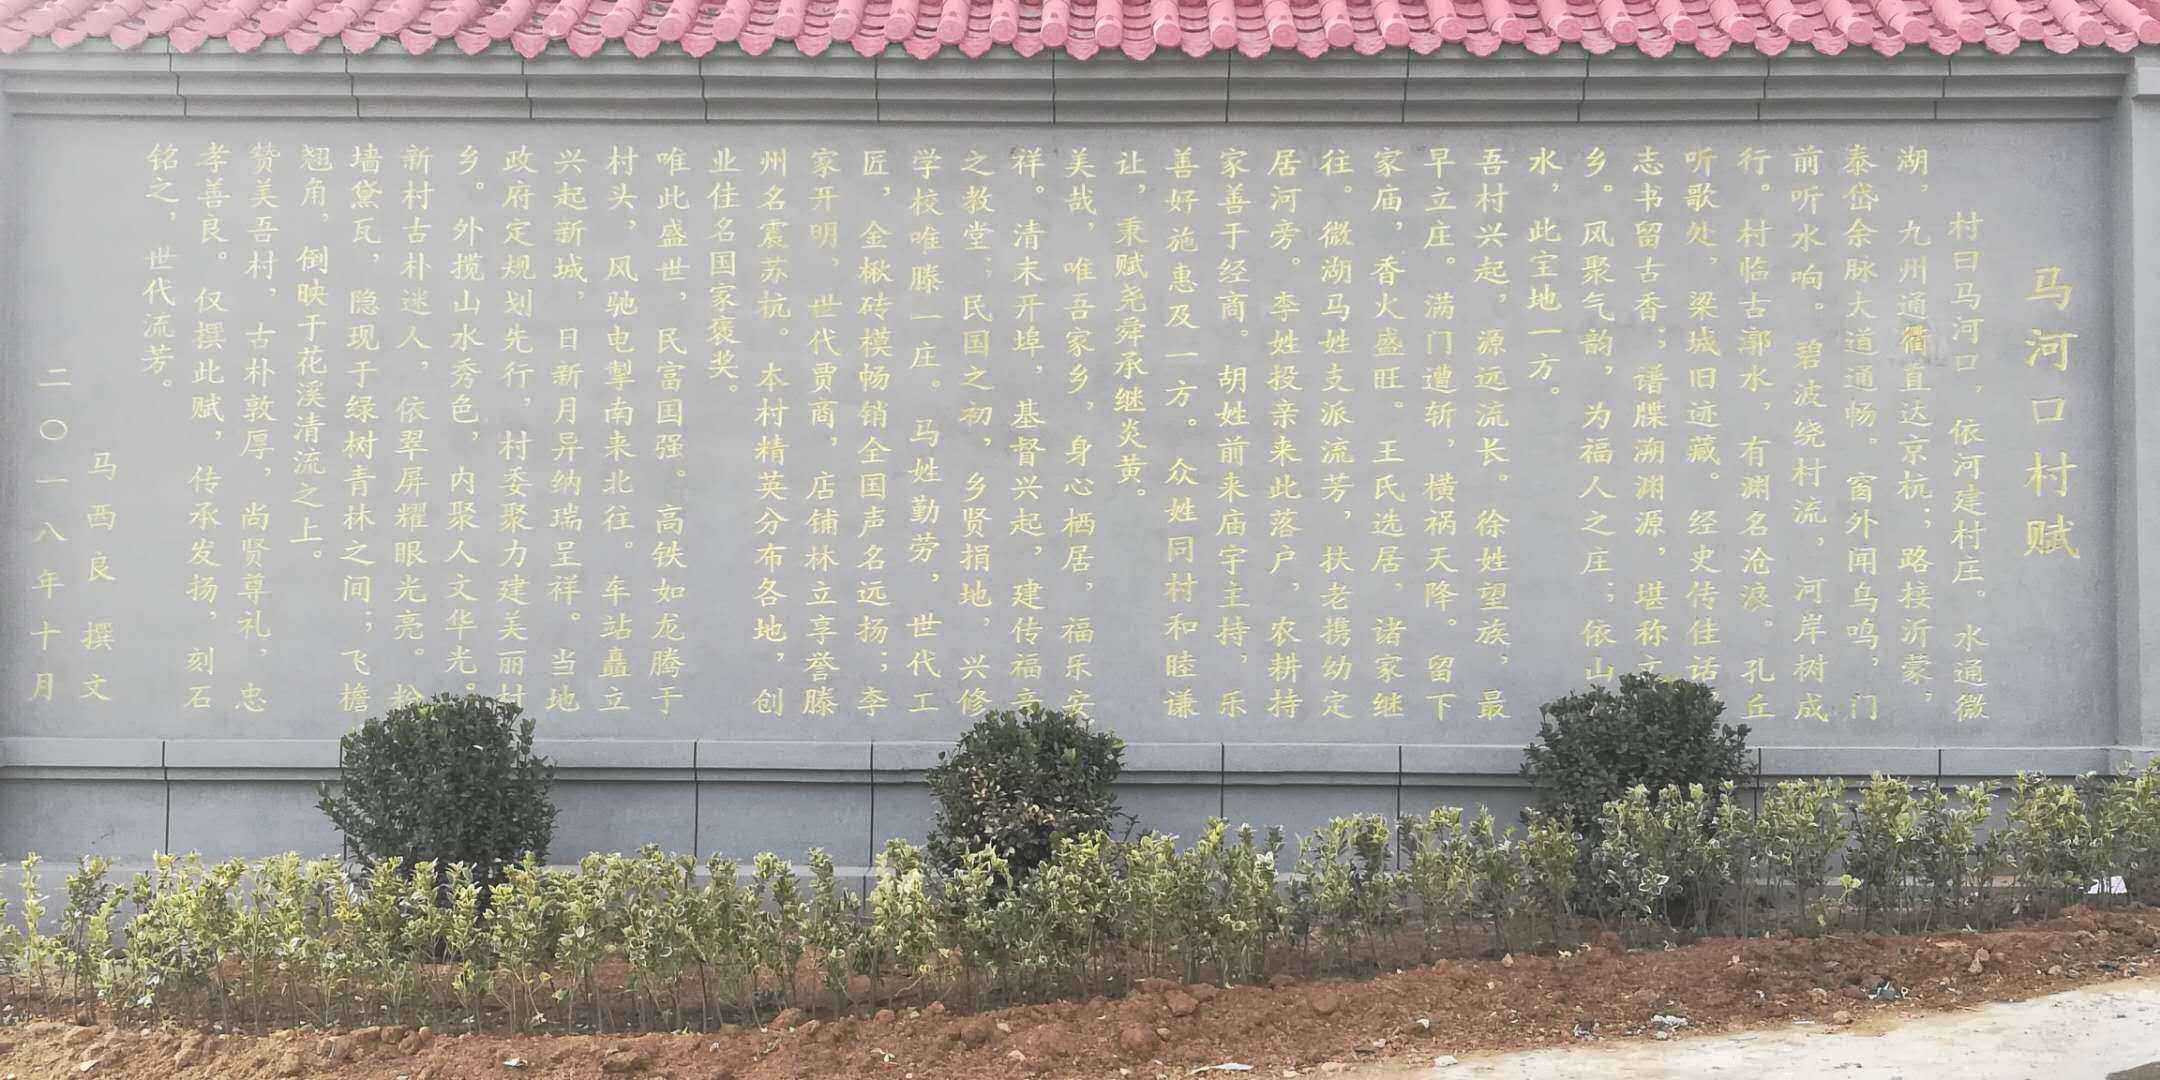 马河口村赋
村曰马河口，依河建村庄。水通微
湖，九州通衢直达京杭；路接沂蒙，
泰岱余脉大道通畅。窗外闻鸟鸣，门
前听水响。碧波绕村流，河岸树成
行。村临古漷水，有渊名沧浪。孔丘
听歌处，梁城旧迹藏。经史传佳话
志书留古香；谱牒溯渊源，堪称
乡。风聚气韵，为福人之庄；依山
水，此宝地一方。
吾村兴起，源远流长。徐姓望族，最
早立庄。满门遭斩，横祸天降。留下
家庙，香火盛旺。王氏选居，诸家继
往。微湖马姓支派流芳，扶老携幼定
居河旁。李姓投亲来此落户，农耕持
家善于经商。胡姓前来庙宇主持，乐
善好施惠及一方。众姓同村和睦谦
让，秉赋尧舜承继炎黄。
美哉，唯吾家乡，身心栖居，福乐安
祥。清末开埠，基督兴起，建传福音
之教堂；民国之初，乡贤捐地，兴修
学校唯滕一庄。马姓勤劳，世代工
匠，金楸砖模畅销全国声名远扬；李
家开明，世代贾商，店铺林立享誉滕
州名震苏杭。本村精英分布各地，创
业佳名国家褒奖。
唯此盛世，民富国强。高铁如龙腾于
村头，风驰电掣南来北往。车站矗立
兴起新城，日新月异纳瑞呈祥。当地
政府定规划先行，村委聚力建美丽村
乡。外揽山水秀色，内聚人文华光。
新村古朴迷人，依翠屏耀眼光亮。粉
墙黛瓦，隐现于绿树青林之间；飞檐
翘角，倒映于花溪清流之上。
赞美吾村，古朴敦厚，尚贤尊礼，忠
孝善良。仅撰此赋，传承发扬，刻石
铭之，世代流芳。
马西良 撰文
二〇一八年十月